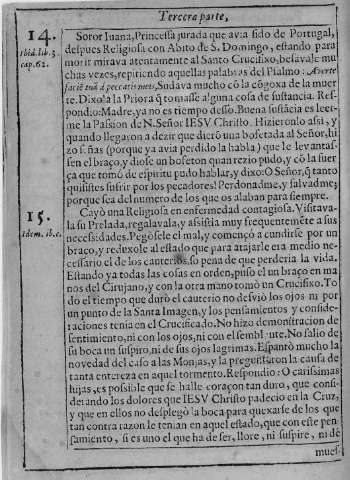 Tercera parte,
14.
Ibid. lib. 3.
cap. 62.
Soror Iuana, Princessa jurada que avia sido de Portugal,
despues Religiosa con Abito de S. Domingo, estando para
morir mirava atentamente al Santo Crucifixo, besavale mu
chas vezes, repitiendo aquellas palabras del Psalmo: Averte
faciē tuā à peccatis meis, Sudava mucho cō la cōgoxa de la muer
te. Dixola la Priora q̃ tomasse alguna cosa de sustancia. Res
pondio: Madre, ya no es tiempo desso. Buena sustācia es leer-
me la Passion de N. Señor IESV Christo. Hizieronlo assi, y
quando llegaron a dezir que dierō una bofetada al Señor, hi-
zo señas (porque ya avia perdido la habla) que le levantas-
sen el braço, y diose un bofeton quan rezio pudo, y cō la fuer
ça que tomò de espiritu pudo hablar, y dixo: O Señor, q̃ tanto
quisistes sufrir por los pecadores! Perdonadme, y salvadme;
porque sea del numero de los que os alaban para siempre.
15.
Idem. ib. c.
Cayò una Religiosa en enfermedad contagiosa. Visitava-
la su Prelada, regalavala, y assistia muy frequentemēte a sus
necessidades. Pegòsele el mal, y començò a cundirse por un
braço, y reduxole al estado que para atajarle era medio ne-
cessario el de los cauterios, so pena de que perderia la vida.
Estando ya todas las cosas en orden, puso el un braço en ma
nos del Cirujano, y con la otra mano tomò un Crucifixo. To
do el tiempo que durò el cauterio no desviò los ojos ni por
un punto de la Santa Imagen, y los pensamientos y conside-
raciones tenia en el Crucificado. No hizo demonstracion de
sentimiento, ni con los ojos, ni con el semblante. No salio de
su boca un suspiro, ni de sus ojos lagrimas. Espantò mucho la
novedad del caso a las Monjas, y la preguntaron la causa de
tanta entereza en aquel tormento. Respondio: O carissimas
hijas, es possible que se halle coraçon tan duro, que consi-
derando los dolores que IESV Christo padecio en la Cruz,
y que en ellos no desplegò la boca para quexarse de los que
tan contra razon le tenian en aquel estado, que con este pen-
samiento, si es uno el que ha de ser, llore, ni suspire, ni dè
mues-